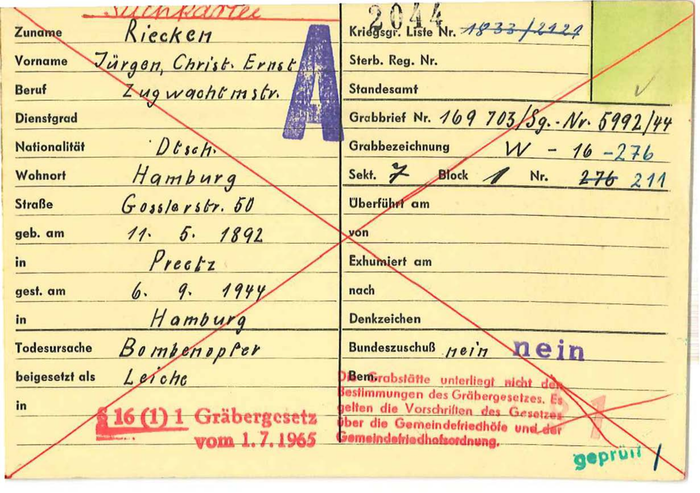 Suchkartei
Zuname Riecken
Vorname Jürgen, Christ. Ernst
Beruf Zugwachtmstr.
Dienstgrad
Nationalität Dtsch.
Wohnort Hamburg
Straße Gosslerstr. 50
geb. am 11. 5. 1892
in Preetz
gest. am 6. 9. 1944
in Hamburg
Todesursache Bombenopfer
beigesetzt als Leiche
in
§ 16 (1) 1 Gräbergesetz
vom 1.7.1965
A
2044
Kriegsgr. Liste Nr. 1833/2121
Sterb. Reg. Nr.
Standesamt
Grabbrief Nr. 169 703/Sg.-Nr. 5992/44
Grabbezeichnung W - 16 -276
Sekt. 7 Block 1 Nr. 276 211
Überführt am
von
Exhumiert am
nach
Denkzeichen
Bundeszuschuß nein nein
Bem.
Die Grabstätte unterliegt nicht den
Bestimmungen des Gräbergesetzes. Es
gelten die Vorschriften des Gesetzes
über die Gemeindefriedhöfe und der
Gemeindefriedhofsordnung.
geprüft